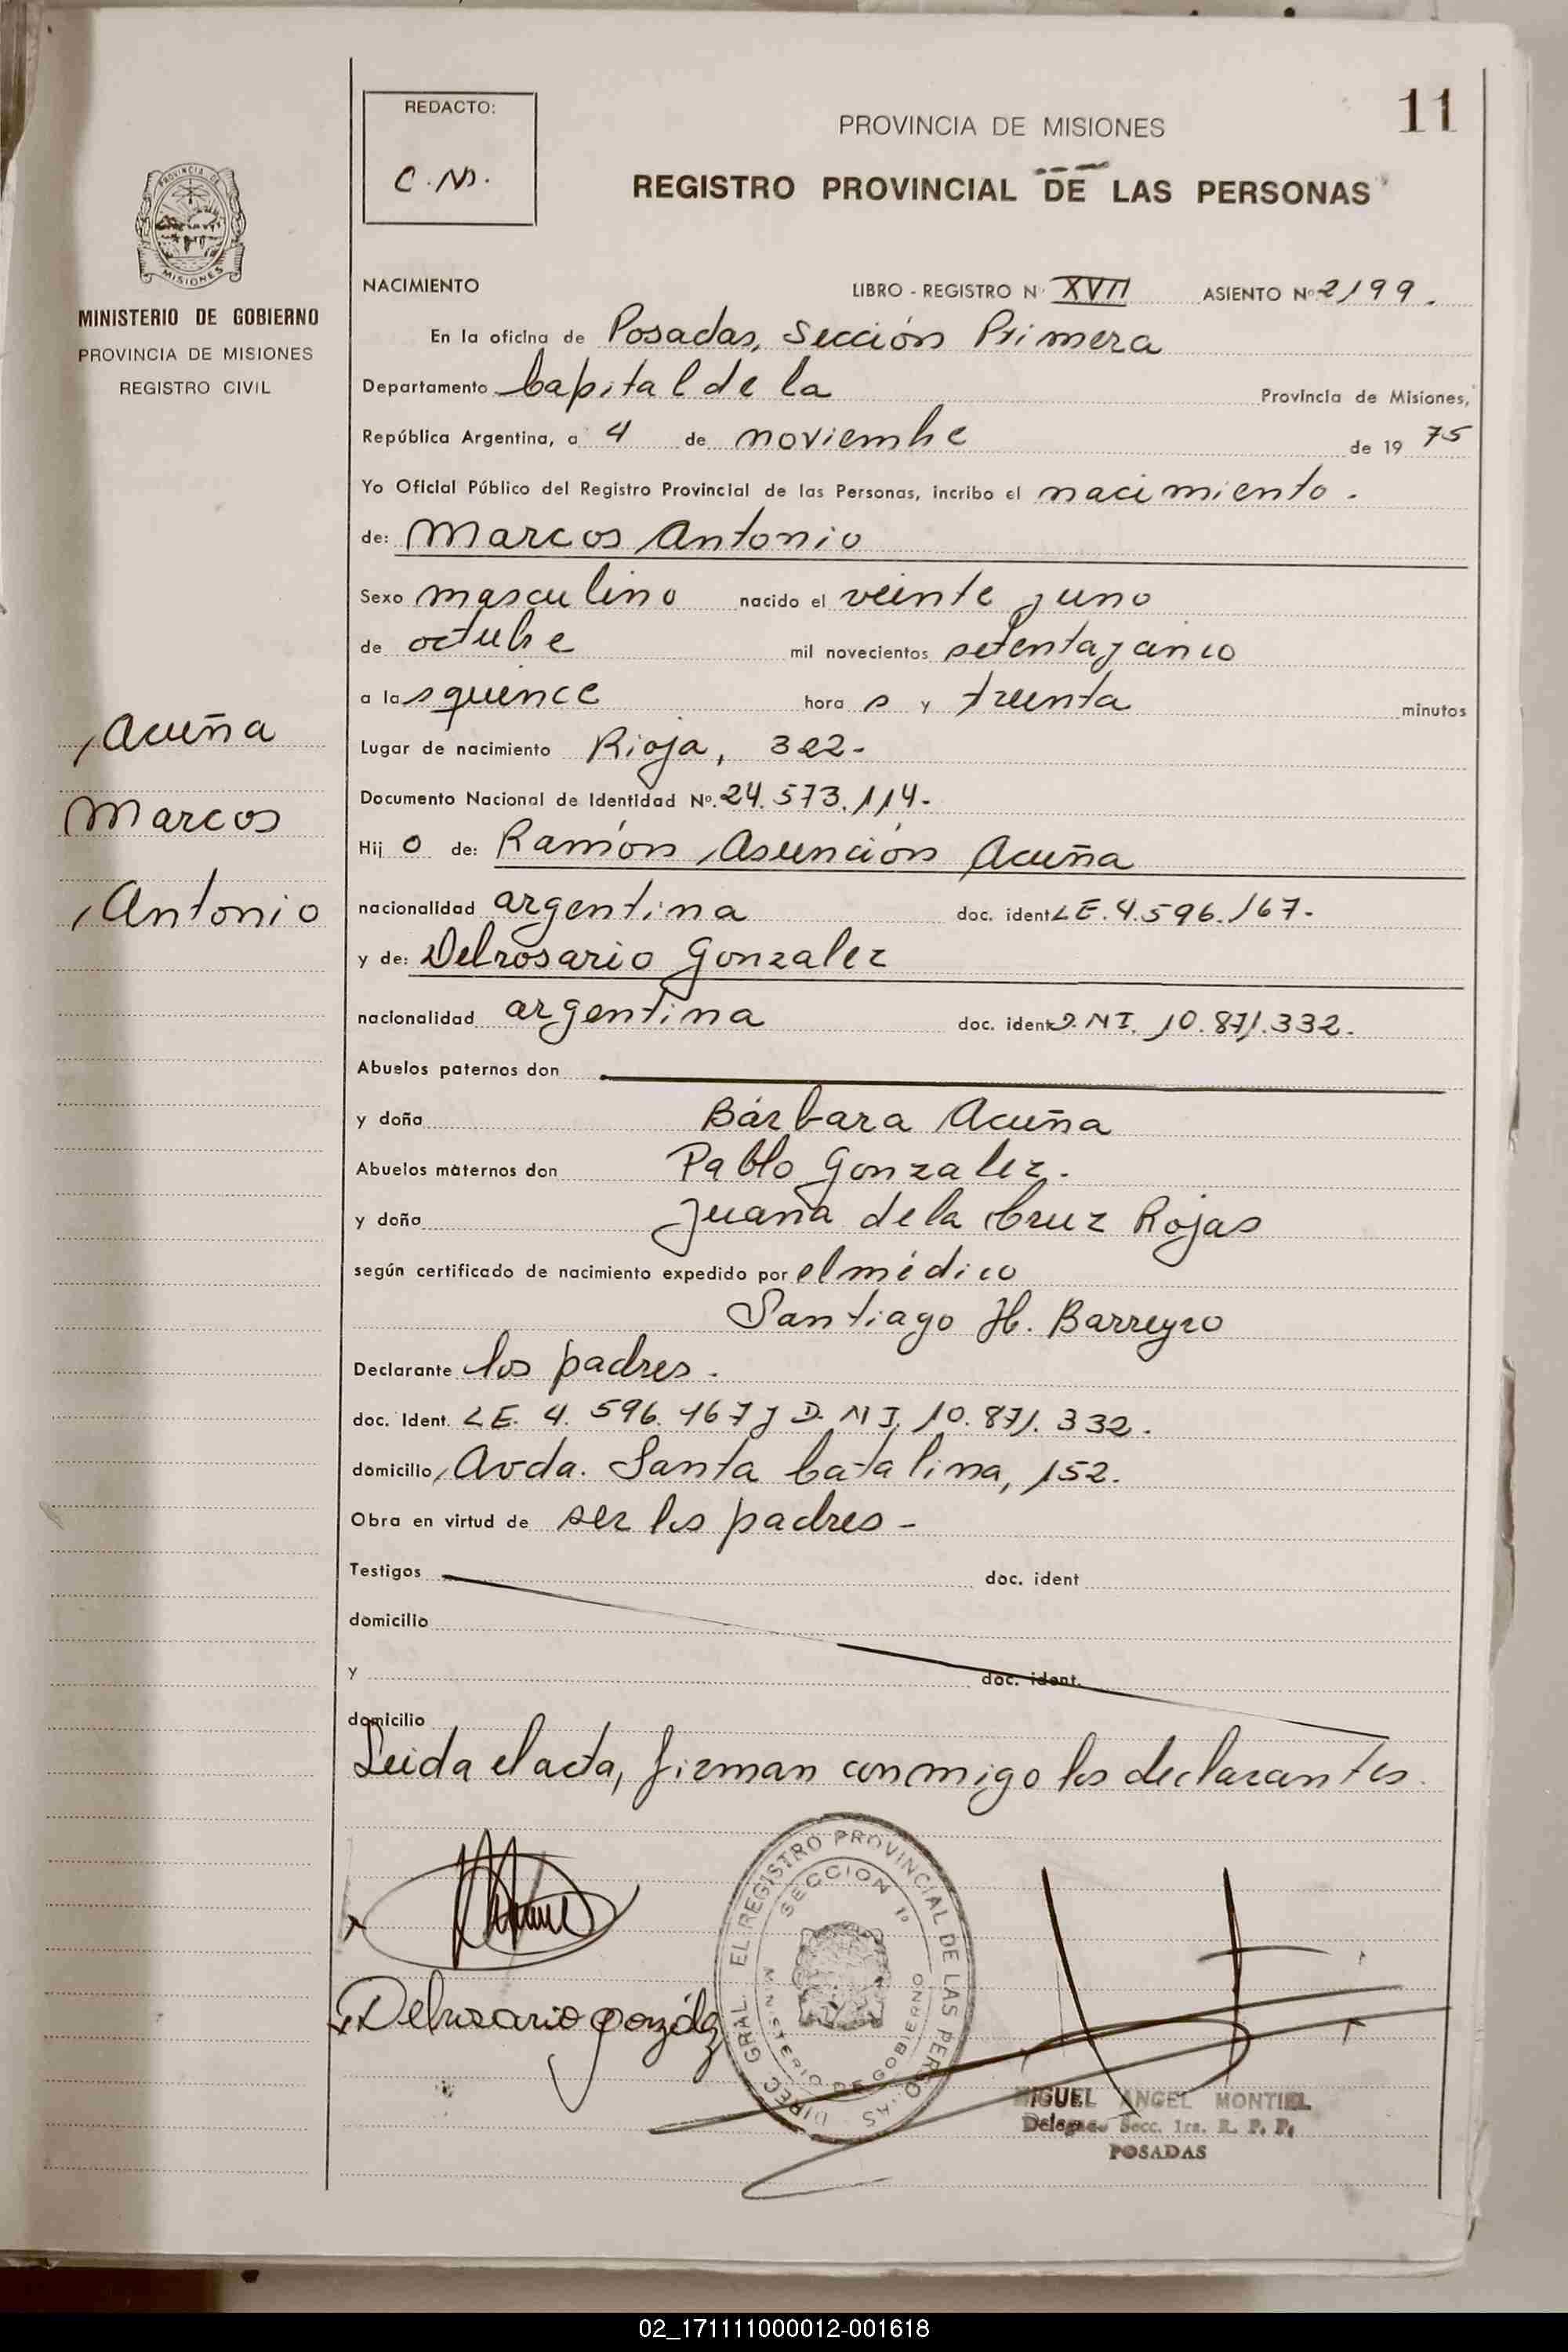 11
REDACTO:
C.N.
PROVINCIA DE MISIONES
REGISTRO PROVINCIAL DE LAS PERSONAS
PROVINCIA DE
MISIONES
MINISTERIO DE GOBIERNO
PROVINCIA DE MISIONES
REGISTRO CIVIL
Acuña
Marcos
Antonio
NACIMIENTO LIBRO - REGISTRO Nº XVII ASIENTO Nº 2199.
En la oficina de Posadas, Sección Primera
Departamento Capital de la Provincia de Misiones,
República Argentina, a 4 de noviembre de 19 75
Yo Oficial Público del Registro Provincial de las Personas, incribo el nacimiento.
de: Marcos Antonio
Sexo masculino nacido el veinte y uno
de octubre mil novecientos setenta y cinco
a las quince hora s y treinta minutos
Lugar de nacimiento Rioja, 322-
Documento Nacional de Identidad Nº. 24.573.114-
Hij o de: Ramón Asunción Acuña
nacionalidad argentina doc. ident LE. 4.596.167-
y de: Delrosario Gonzalez
nacionalidad argentina doc. ident D.N I. 10.871.332-
Abuelos paternos don
y doña Bárbara Acuña
Abuelos maternos don Pablo Gonzalez.
y doña Juana de la Cruz Rojas
según certificado de nacimiento expedido por el médico
Santiago H. Barreyro
Declarante los padres.
doc. Ident. LE. 4. 596. 167 y D. N I. 10. 871. 332.
domicilio Avda. Santa Catalina, 152.
Obra en virtud de ser los padres-
Testigos doc. ident
domicilio
y doc. ident.
domicilio
Leida el acta, firman conmigo los declarantes.
Delrosario gonzález
DIREC. GRAL. EL REGISTRO PROVINCIAL DE LAS PERSONAS
SECCION 1º
MINISTERIO DE GOBIERNO
MIGUEL ANGEL MONTIEL
Delegado Secc. 1ra. R. P. P.
POSADAS
02_171111000012-001618